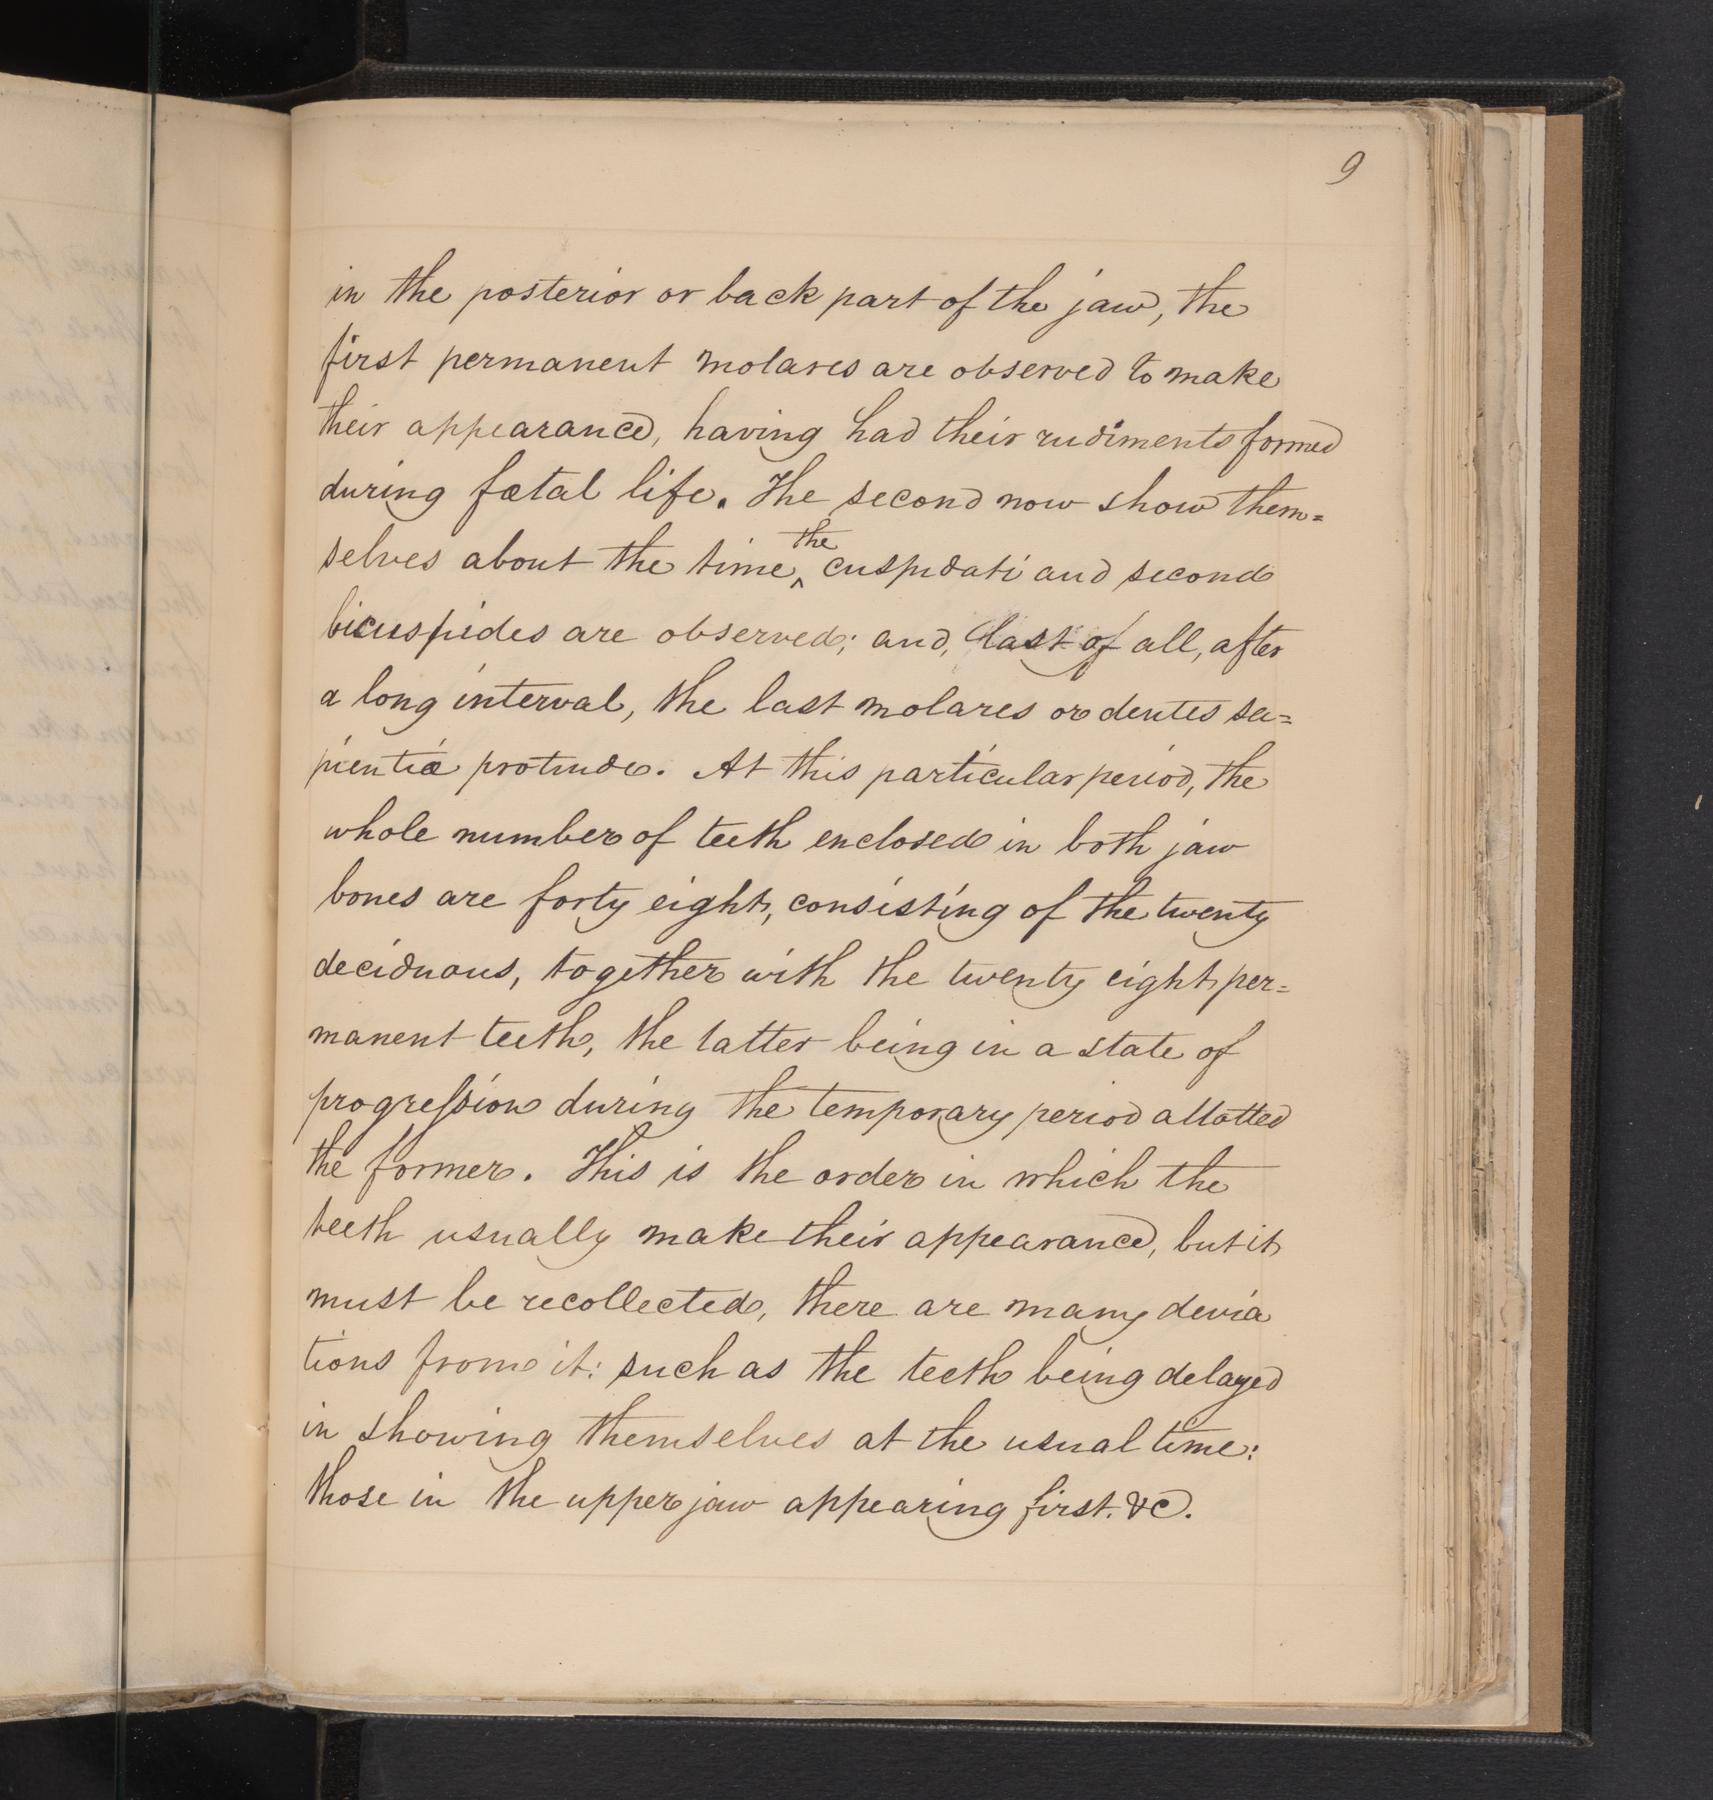 9
in the posterior or back part of the jaw, the
first permanent molares are observed to make
their appearance, having had their rudiments formed
during fœtal life. The second now show them=
selves about the time ‸the cuspidati and second
bicuspides are observed; and, last of all, after
a long interval, the last molares or dentes sa=
pientiæ protrude. At this particular period, the
whole number of teeth enclosed in both jaw
bones are forty eight, consisting of the twenty
deciduous, together with the twenty eight per=
manent teeth, the latter being in a state of
progreſsion during the temporary period allotted
the former. This is the order in which the
teeth usually make their appearance, but it
must be recollected, there are many devia
tions from it: such as the teeth being delayed
in showing themselves at the usual time:
those in the upper jaw appearing first. &c.